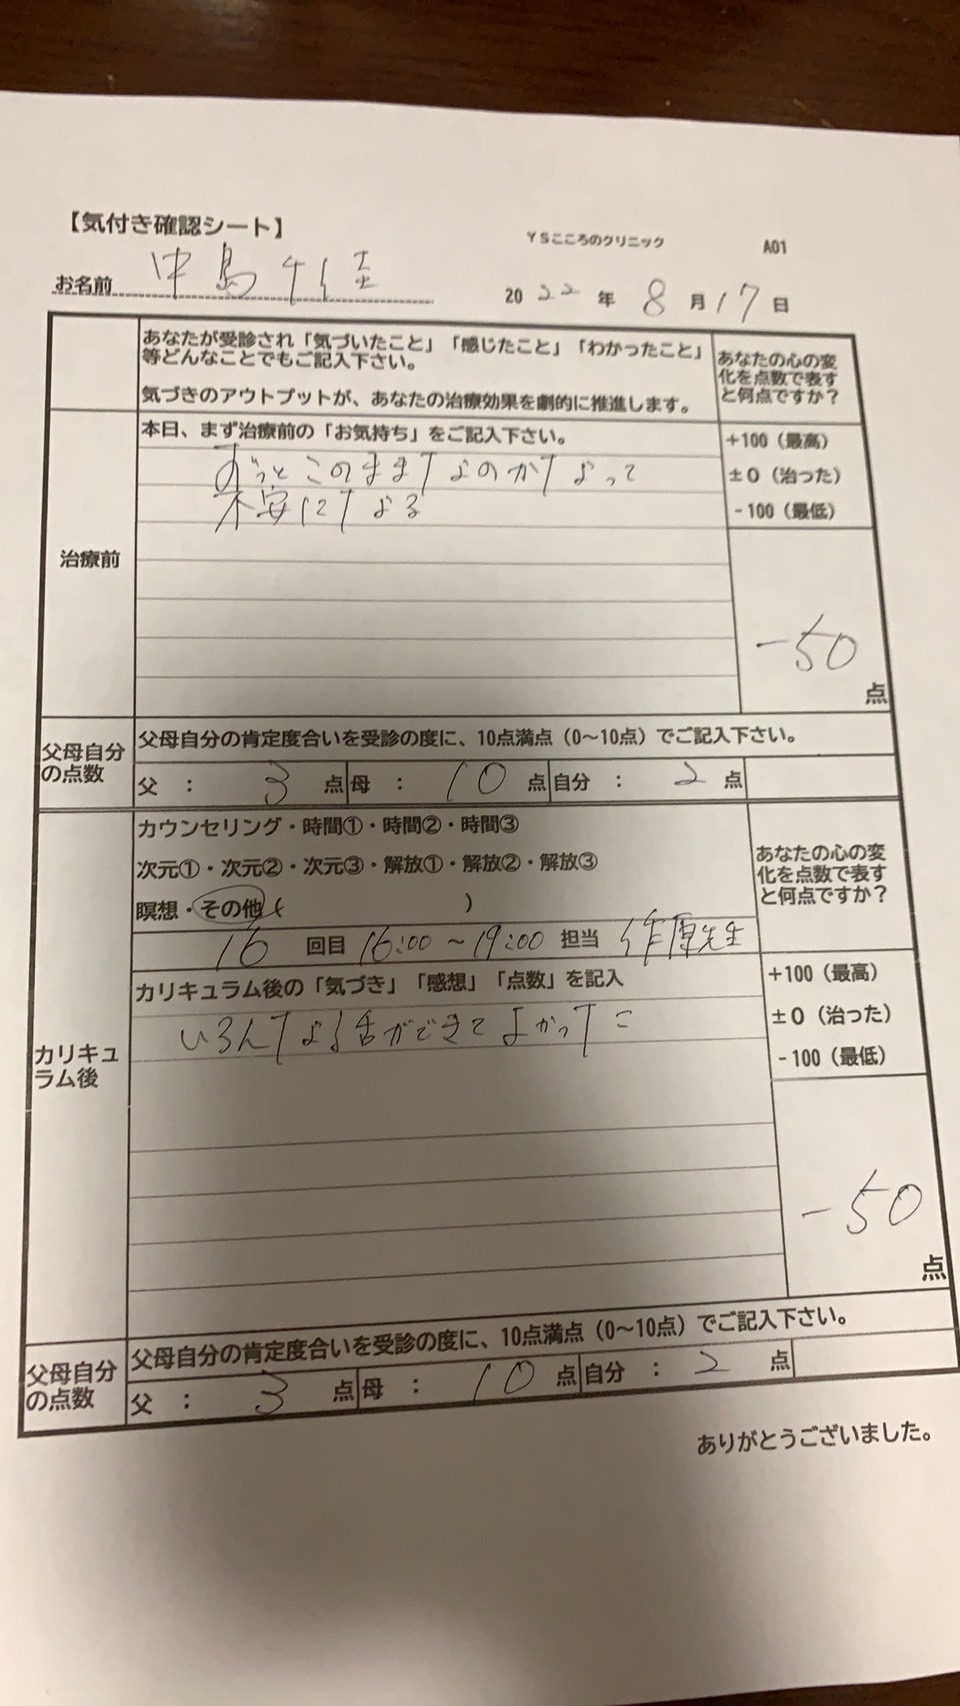 【気付き確認シート】
YSこころのクリニック
A01
お名前 中島
2022年8月17日
あなたが受診され「気づいたこと」「感じたこと」「わかったこと」
等どんなことでもご記入下さい。
気づきのアウトプットが、あなたの治療効果を劇的に推進します。
あなたの心の変
化を点数で表す
と何点ですか？
治療前
本日、まず治療前の「お気持ち」をご記入下さい。
ずっとこのままなのかなって
不安になる
+100（最高）
±0（治った）
-100（最低）
-50
点
父母自分
の点数
父母自分の肯定度合いを受診の度に、10点満点（0～10点）でご記入下さい。
父 ： 3 点 母 ： 10 点 自分 ： 2 点
カリキュ
ラム後
カウンセリング・時間①・時間②・時間③
次元①・次元②・次元③・解放①・解放②・解放③
瞑想・その他（ ）
あなたの心の変
化を点数で表す
と何点ですか？
16 回目 16:00～19:00 担当 原先生
カリキュラム後の「気づき」「感想」「点数」を記入
いろんな話ができてよかった
+100（最高）
±0（治った）
-100（最低）
-50
点
父母自分
の点数
父母自分の肯定度合いを受診の度に、10点満点（0～10点）でご記入下さい。
父 ： 3 点 母 ： 10 点 自分 ： 2 点
ありがとうございました。